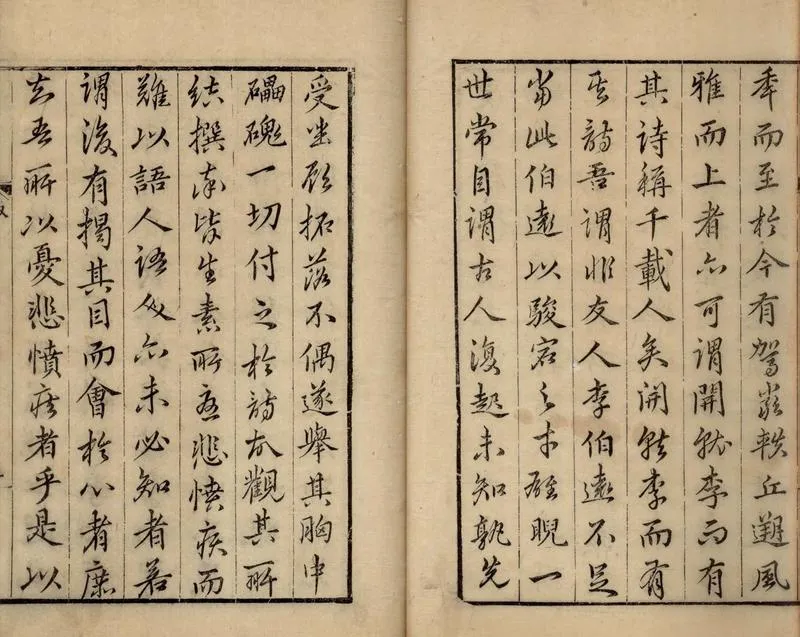 季而至於今有駕嵬軼丘遡風
雅而上者亦可謂開然李而有
其詩稱千載人矣開然李而有
其詩吾謂非友人李伯遠不足
當此伯遠以駿宕之才睥睨一
世常自謂古人復起未知孰先
受坐以拓落不偶遂舉其胸中
礧磈一切付之於詩故觀其所
結撰率皆生素所為悲憤疾而
難以語人語人亦未必知者若
謂後有揭其目而會於心者庶
知吾所以憂悲憤疾者乎是以